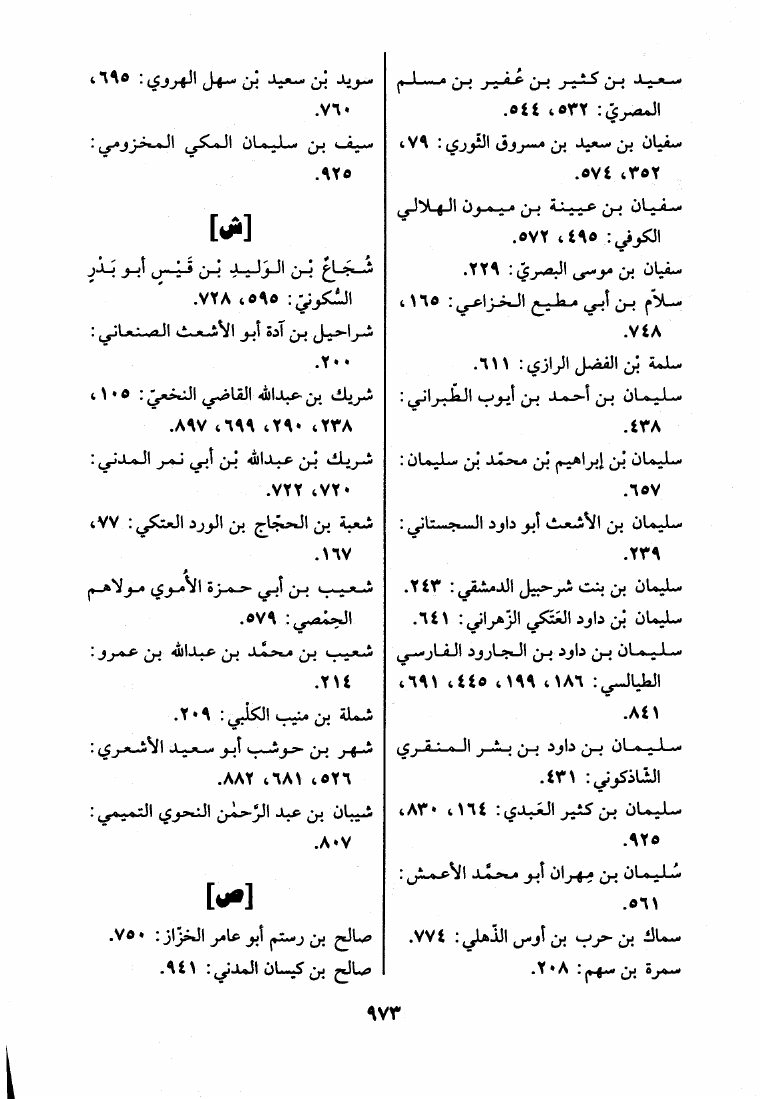 سعيد بن كثير بن عُفير بن مسلم
المصريّ: ٥٣٢، ٥٤٤.
سفيان بن سعيد بن مسروق الثّوري: ٧٩،
٣٥٢، ٥٧٤.
سفيان بن عيينة بن ميمون الهلالي
الكوفي: ٤٩٥، ٥٧٢.
سفيان بن موسى البصريّ: ٢٢٩.
سلاّم بن أبي مطيع الخزاعي: ١٦٥،
٧٤٨.
سلمة بْن الفضل الرازي: ٦١١.
سليمان بن أحمد بن أيوب الطّبراني:
٤٣٨.
سليمان بْن إبراهيم بْن محمّد بْن سليمان:
٦٥٧.
سليمان بن الأشعث أبو داود السجستاني:
٢٣٩.
سليمان بن بنت شرحبيل الدمشقي: ٢٤٣.
سليمان بْن داود العَتَكي الزّهراني: ٦٤١.
سليمان بن داود بن الجارود الفارسي
الطيالسي: ١٨٦، ١٩٩، ٤٤٥، ٦٩١،
٨٤١.
سليمان بن داود بن بشر المنقري
الشّاذكوني: ٤٣١.
سليمان بن كثير العَبدي: ١٦٤، ٨٣٠،
٩٢٥.
سُليمان بن مِهران أبو محمَّد الأعمش:
٥٦١.
سماك بن حرب بن أوس الذّهلي: ٧٧٤.
سمرة بن سهم: ٢٠٨.
سويد بْن سعيد بْن سهل الهروي: ٦٩٥،
٧٦٠.
سيف بن سليمان المكي المخزومي:
٩٢٥.
[ش]
شُجَاعٌ بْن الوَليدِ بْن قَيْسٍ أبو بَدْرٍ
السَّكونيّ: ٥٩٥، ٧٢٨.
شراحيل بن آدة أبو الأشعث الصنعاني:
٢٠٠.
شريك بن عبدالله القاضي النخعيّ: ١٠٥،
٢٣٨، ٢٩٠، ٦٩٩، ٨٩٧.
شريك بْن عبدالله بْن أبي نمر المدني:
٧٢٠، ٧٢٢.
شعبة بن الحجّاج بن الورد العتكي: ٧٧،
١٦٧.
شعيب بن أبي حمزة الأُموي مولاهم
الحِمْصي: ٥٧٩.
شعيب بن محمَّد بن عبدالله بن عمرو:
٢١٤.
شملة بن منيب الكلْبي: ٢٠٩.
شهر بن حوشب أبو سعيد الأشعري:
٥٢٦، ٦٨١، ٨٨٢.
شيبان بن عبد الرَّحمٰن النحوي التميمي:
٨٠٧.
[ص]
صالح بن رستم أبو عامر الخزّاز: ٧٥٠.
صالح بن كيسان المدني: ٩٤١.
٩٧٣